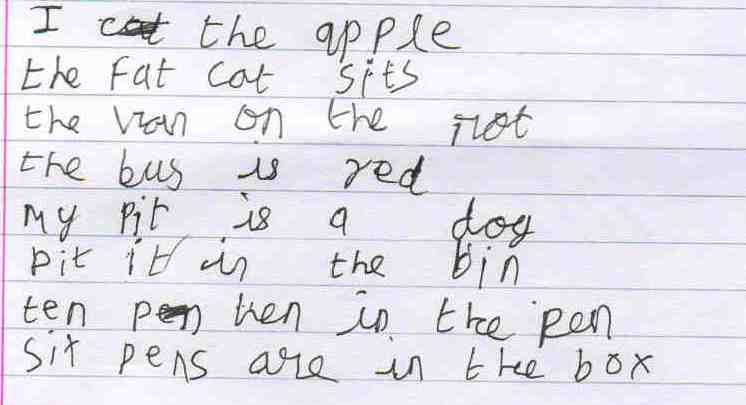 I cat the apple
the Fat cat sits
the van on the not
the bus is red
my pit is a dog
pit it in the bin
ten pen hen in the pen
Sit pens are in the box